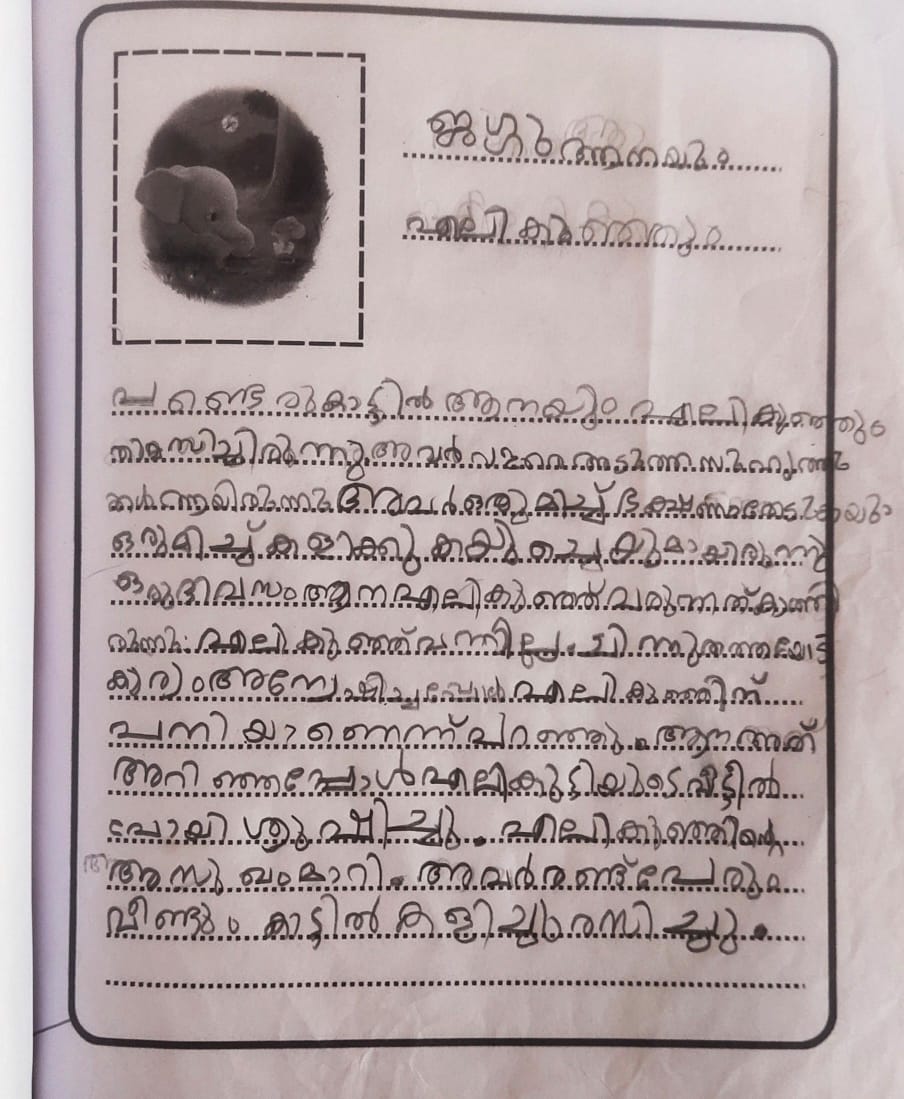 ജഗ്ഗു ആനയും
എലികുഞ്ഞും
പണ്ടൊരുകാട്ടിൽ ആനയും എലികുഞ്ഞും
തിമസിച്ചിരുന്നു അവർ വളരെ അടുത്ത സുഹൃത്തു
ക്കൾണ്ണയിരുന്നു അവർ ഒരുമിച്ച് ഭക്ഷണതേടുകയും
ഒരുമിച്ച് കളിക്കുകയും ചെയ്യുമായിരുന്നു
ഒരുദിവസം ആന എലികുഞ്ഞ് വരുന്നത് കാത്തി
രുന്നു. എലികുഞ്ഞ് വന്നില്ല.
കാര്യം അന്വേഷിച്ചപ്പോൾ എലികുഞ്ഞിന്
പനിയാണെന്ന് പറഞ്ഞു. ആന അത്
അറിഞ്ഞപ്പോൾ എലികുട്ടിയുടെ വീട്ടിൽ
പോയി ശുഷിച്ചു. എലികുഞ്ഞിന്റെ
അസുഖംമാറി. അവർ രണ്ട് പേരും
വീണ്ടും കാട്ടിൽ കളിച്ചു രസിച്ചു.